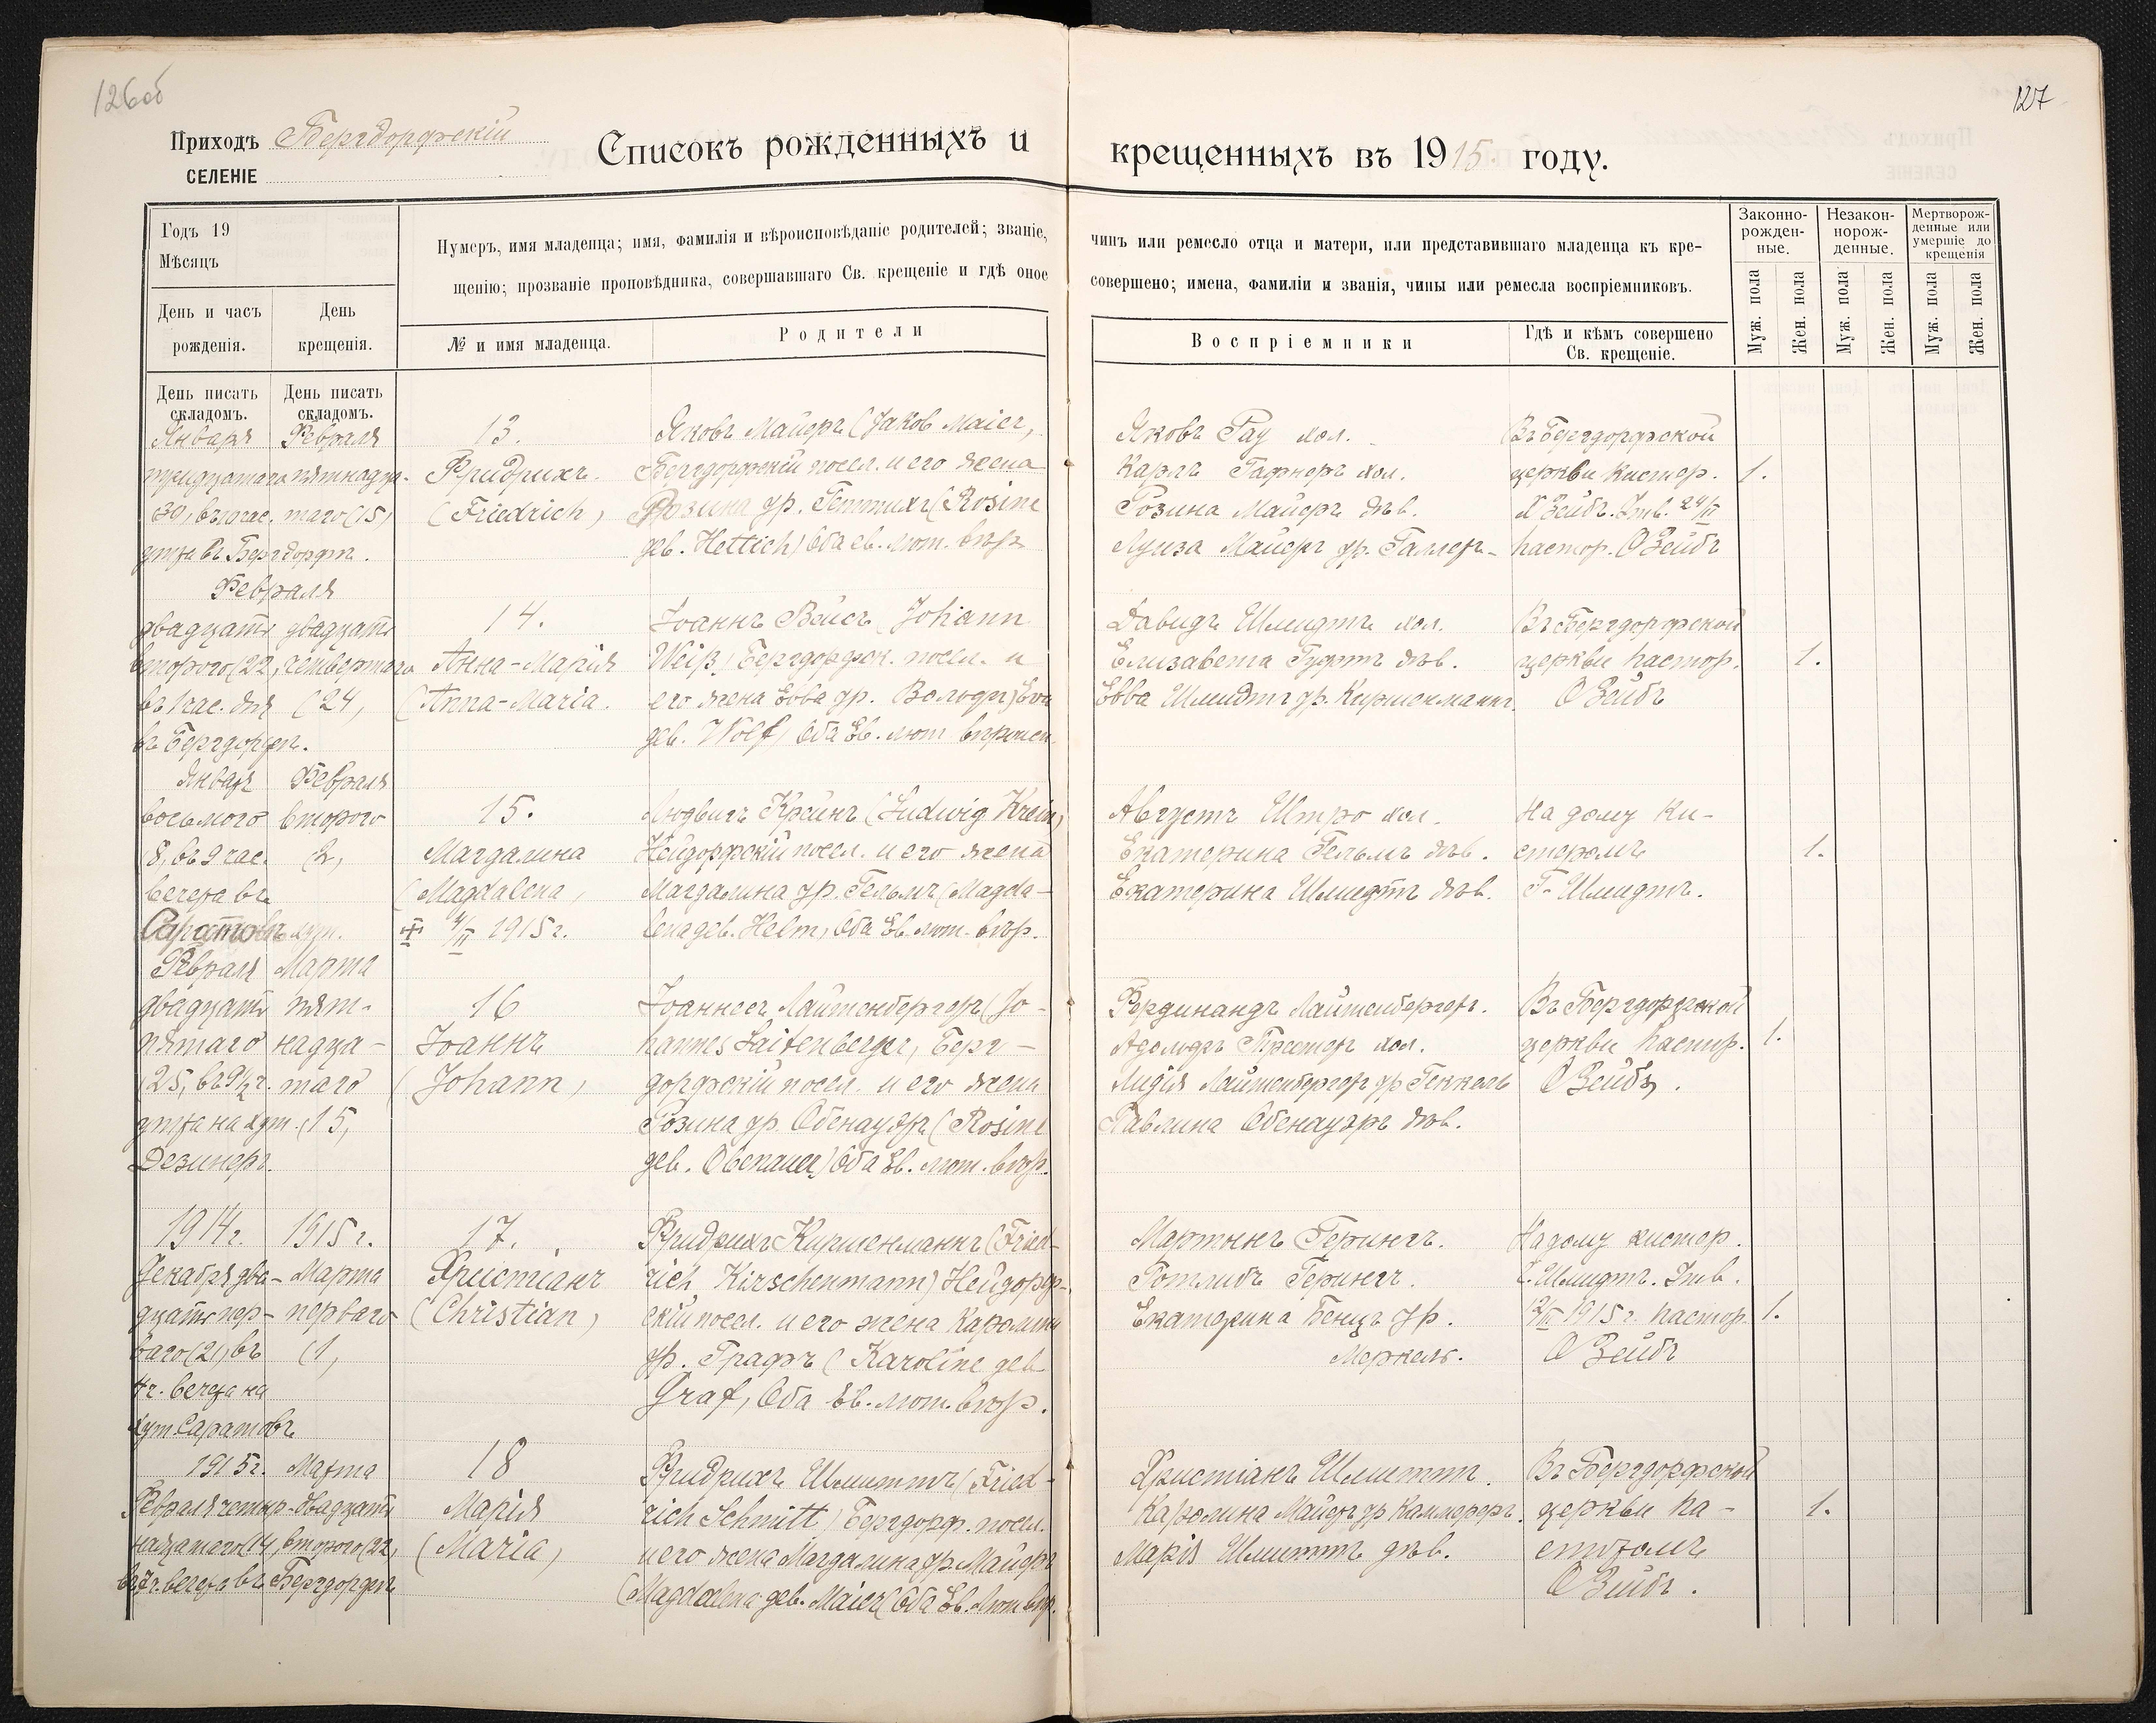 126об
127
Приходъ Бергдорфскій
СЕЛЕНІЕ
Списокъ рожденныхъ и крещенныхъ въ 1915 году.
Годъ 19
Мѣсяцъ
День и часъ рожденія.
День крещенія.
Нумеръ, имя младенца; имя, фамилія и вѣроисповѣданіе родителей; званіе, чинъ или ремесло отца и матери, или представившаго младенца къ кре-
щенію; прозваніе проповѣдника, совершавшаго Св. крещеніе и гдѣ оное совершено; имена, фамиліи и званія, чины или ремесла воспріемниковъ.
№ и имя младенца.
Родители
Воспріемники
Гдѣ и кѣмъ совершено
Св. крещеніе.
Законно-
рожден-
ные.
Незакон-
норож-
денные.
Мертворож-
денные или
умершіе до
крещенія
Муж. пола
Жен. пола
Муж. пола
Жен. пола
Муж. пола
Жен. пола
День писать
складомъ.
День писать
складомъ.
Января
тридцатаго
утра въ Бергдорфѣ.
Февраля
пятнадца-
таго (15)
13.
Фридрихъ.
(Friedrich)
Яковъ Майеръ (Jakob Maier,
Бергдорфскій посел. и его жена
Розина ур. Геттихъ (Rosine
геб. Hettich) Оба ев. лют. вѣр.
Яковъ Рау хол.
Карлъ Гафнеръ хол.
Розина Майеръ дѣв.
Луиза Майеръ ур. Галлеръ
Въ Бергдорфской
церкви кистер.
пастор. О Зейбъ
1.
Февраля
двадцать
второго (22,
въ 1 час. дня
въ Бергдорфѣ.
двадцать
четвертаго
(24,
14.
Анна-Марія
(Anna-Maria.
Іоаннъ Вейсъ (Johann
Weiß) Бергдорфск. посел. и
его жена Ева ур. Вольфъ (Eva
геб. Wolf) Оба Ев. лют вѣроисп.
Давидъ Шмидтъ хол.
Елизавета Гуфтъ дѣв.
Евва Шмидтъ ур. Киршенманнъ.
Въ Бергдорфской
церкви пастор.
О Зейбъ
1.
Января
восьмого
(8, въ 9 час.
вечера въ
Саратовъ хут.
Февраля
второго
(2,
15.
Магдалина
(Magdalena,
4/II 1915 г.
Людвигъ Крейнъ (Ludwig Krein)
Нейдорфскій посел. и его жена
Магдалина ур. Гельмъ (Magda-
lena геб. Helm, Оба Ев. лют. вѣр.
Августъ Штро хол.
Екатерина Гельмъ дѣв.
Екатерина Шмидтъ дѣв.
На дому Ки-
стеромъ
Г. Шмидтъ.
1.
Февраля
двадцать
пятаго
(25, въ 9½ ч.
утра на хут.
Дезинеръ.
Марта
пят-
надца-
таго
(15,
16
Іоаннъ
(Johann)
Іоаннесъ Лайтенбергеръ (Jo-
hannes Laitenberger, Берг-
дорфскій посел. и его жена
Розина ур. Обенауэръ (Rosine
геб. Obenauer) Оба Ев. лют. вѣр.
Фердинандъ Лайтенбергеръ.
Адольфъ Тристеръ хол.
Лидія Лайтенбергеръ ур Геккель
Павлина Обенауэръ дѣв.
Въ Бергдорфской
церкви пастор.
О Зейбъ.
1.
1914 г.
Декабря два-
дцать пер-
ваго (21) въ
4 ч. вечера на
хут Саратовъ
1915 г.
Марта
перваго
(1,
17.
Христіанъ
(Christian)
Фридрихъ Киршенманнъ (Fried-
rich Kirschenmann) Нейдорф-
скій посел. и его жена Каролина
ур. Графъ (Karoline геб
Graf, Оба Ев. лют. вѣр.
Мартынъ Герингъ.
Готлибъ Герингъ.
Екатерина Бенцъ ур.
Меркель.
На дому кистер.
Г. Шмидтъ. Утв.
12/III 1915 г. пастор.
О Зейбъ
1.
1915 г.
Февраля четыр-
надцатаго (14,
вечера въ Бергдорфѣ
Марта
двадцать
второго (22,
18
Марія
(Maria)
Фридрихъ Шмиттъ (Fried-
rich Schmitt) Бергдорф. посел.
и его жена Магдалина ур. Майеръ
(Magdalena геб. Maier) Оба Ев. Лют вѣр.
Христіанъ Шмиттъ.
Каролина Майеръ ур Каммереръ.
Марія Шмиттъ дѣв.
Въ Бергдорфской
церкви па-
сторомъ
О Зейбъ.
1.